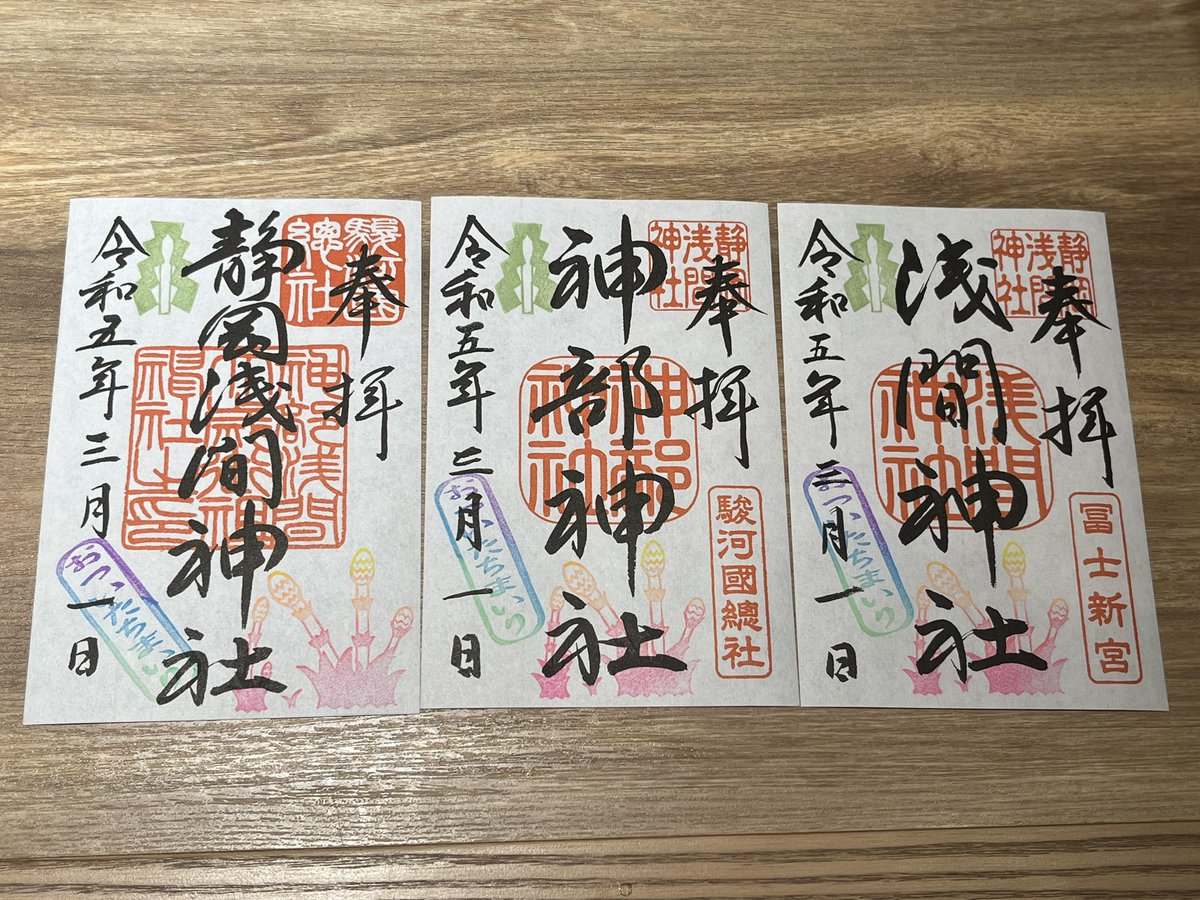 奉拝
駿河総社
静岡浅間神社
神部浅間
令和五年三月一日
おついたちまいり
奉拝
静岡浅間神社
駿河國總社
神部神社
神部神社
令和五年三月一日
おついたちまいり
奉拝
静岡浅間神社
冨士新宮
浅間神社
浅間神社
令和五年三月一日
おついたちまいり